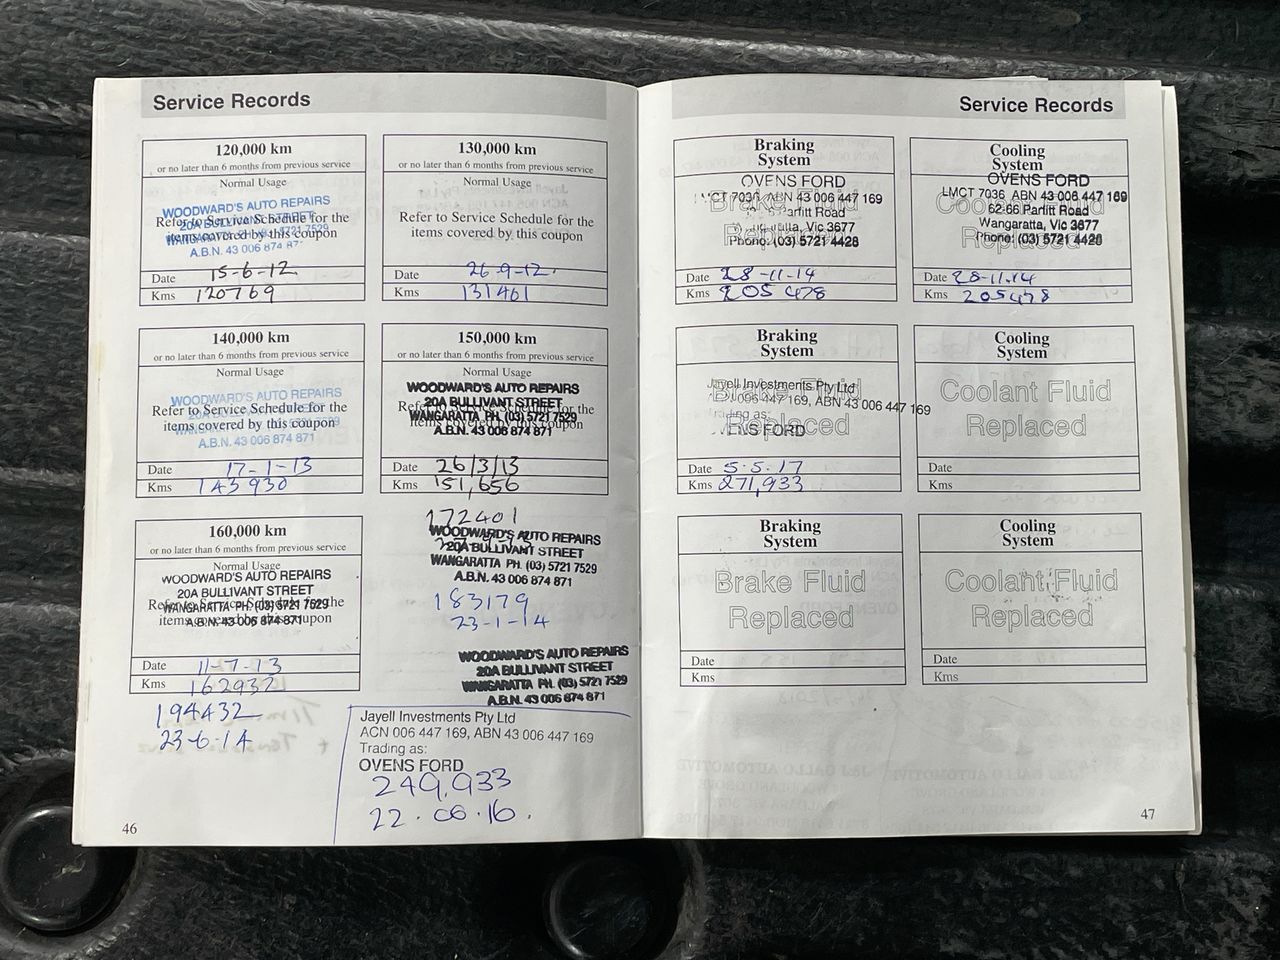 Service Records
120,000 km
or no later than 6 months from previous service
Normal Usage
WOODWARD'S AUTO REPAIRS
Refer to Service Schedule for the
items covered by this coupon
A.B.N. 43 006 874 871
Date 15-6-12
Kms 120769
130,000 km
or no later than 6 months from previous service
Normal Usage
Refer to Service Schedule for the
items covered by this coupon
Date 26-9-12.
Kms 131461
140,000 km
or no later than 6 months from previous service
Normal Usage
WOODWARD'S AUTO REPAIRS
Refer to Service Schedule for the
items covered by this coupon
A.B.N. 43 006 874 871
Date 17-1-13
Kms 143930
150,000 km
or no later than 6 months from previous service
Normal Usage
WOODWARD'S AUTO REPAIRS
20A BULLIVANT STREET
WANGARATTA PH. (03) 5721 7529
A.B.N. 43 006 874 871
Date 26/3/13
Kms 151,656
160,000 km
or no later than 6 months from previous service
Normal Usage
WOODWARD'S AUTO REPAIRS
20A BULLIVANT STREET
WANGARATTA PH. (03) 5721 7529
A.B.N. 43 006 874 871
Date 11-7-13
Kms 162932
194432
23-6-14
172401
WOODWARD'S AUTO REPAIRS
20A BULLIVANT STREET
WANGARATTA PH. (03) 5721 7529
A.B.N. 43 006 874 871
183179
23-1-14
WOODWARD'S AUTO REPAIRS
20A BULLIVANT STREET
WANGARATTA PH. (03) 5721 7529
A.B.N. 43 006 874 871
Jayell Investments Pty Ltd
ACN 006 447 169, ABN 43 006 447 169
Trading as:
OVENS FORD
249,933
22.08.16.
46
Service Records
Braking
System
OVENS FORD
7036 ABN 43 006 447 169
Parfitt Road
Vic 3677
Phone: (03) 5721 4428
Brake Fluid
Replaced
Date 28-11-14
Kms 205 478
Cooling
System
OVENS FORD
LMCT 7036 ABN 43 006 447 169
62-66 Parfitt Road
Wangaratta, Vic 3677
Phone: (03) 5721 4428
Coolant Fluid
Replaced
Date 28-11.14
Kms 205478
Braking
System
Jayell Investments Pty Ltd
006 447 169, ABN 43 006 447 169
Trading as:
OVENS FORD
Brake Fluid
Replaced
Date 5.5.17
Kms 271,933
Cooling
System
Coolant Fluid
Replaced
Date
Kms
Braking
System
Brake Fluid
Replaced
Date
Kms
Cooling
System
Coolant Fluid
Replaced
Date
Kms
47